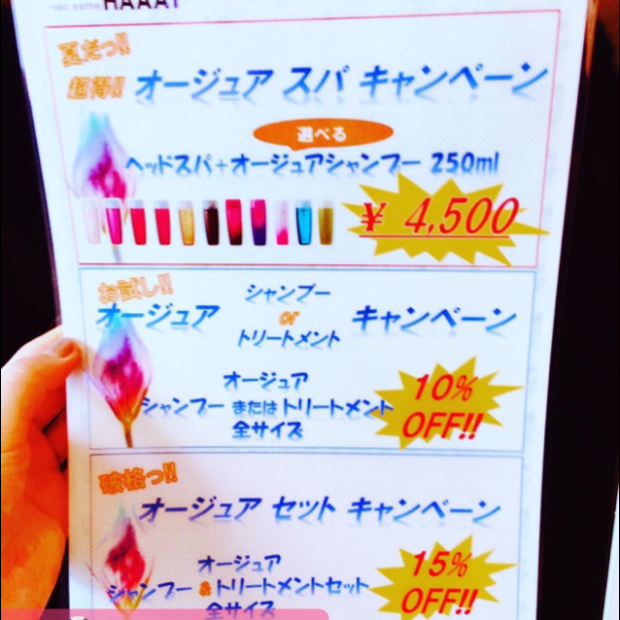 hair esthe HAAAT
夏だっ!!
超得!! オージュア スパ キャンペーン
選べる
ヘッドスパ+オージュアシャンプー 250ml
¥ 4,500
お試し!!
オージュア シャンプー or トリートメント キャンペーン
オージュア
シャンプー または トリートメント
全サイズ
10% OFF!!
破格っ!!
オージュア セット キャンペーン
オージュア
シャンプー & トリートメントセット
全サイズ
15% OFF!!